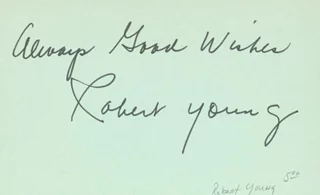 Always Good Wishes
Robert Young
5.00
Robert Young